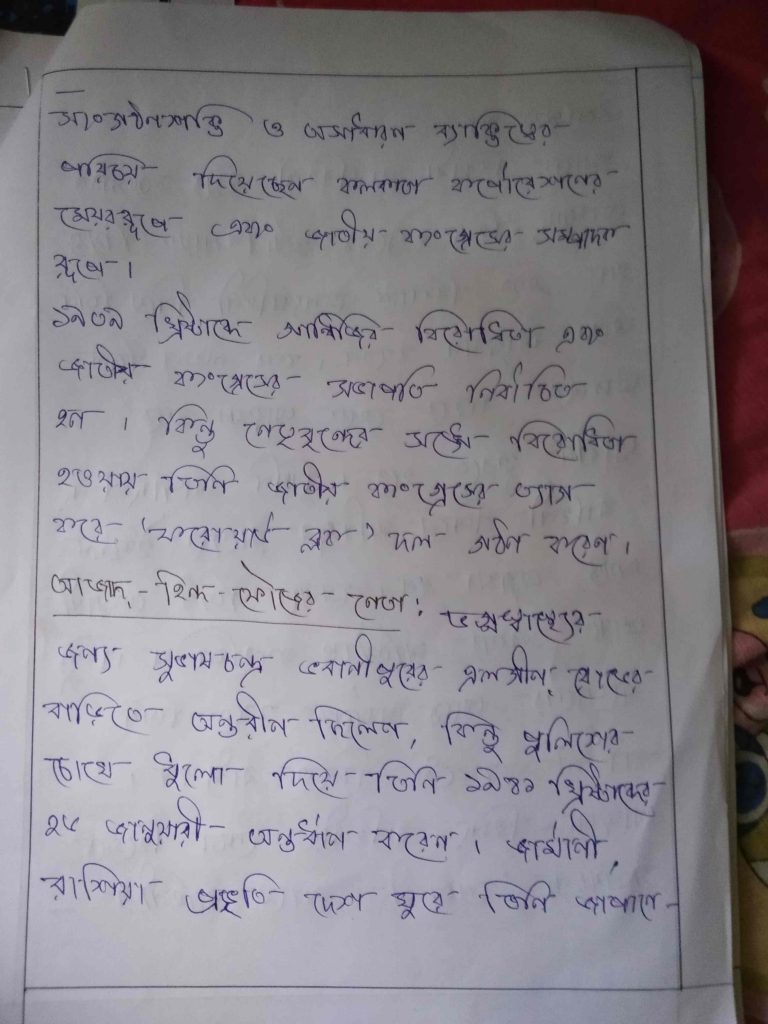 সাংগঠনশক্তি ও অসাধারন ব্যাক্তিত্বের
পরিচয় দিয়েছেন কলকাতা কর্পোরেশনের
মেয়ররূপে এবং জাতীয় কংগ্রেসের সম্পাদক
রূপে।
১৯৩৯ খ্রিষ্টাব্দে গান্ধিজির বিরোধিতা এবং
জাতীয় কংগ্রেসের সভাপতি নির্বাচিত
হন। কিন্তু নেতৃবৃন্দের সঙ্গে বিরোধিতা
হওয়ায় তিনি জাতীয় কংগ্রেসের ত্যাগ
করে 'ফরোয়ার্ড ব্লক' দল গঠন করেন।
আজাদ্-হিন্দ-ফৌজের নেতা: ভগ্নস্বাস্থ্যের
জন্য সুভাষচন্দ্র ভবানীপুরের এলগীন্ রোডের
বাড়িতে অন্তরীন ছিলেন, কিন্তু পুলিশের
চোখে ধুলো দিয়ে তিনি ১৯৪১ খ্রিষ্টাব্দের
২৬ জানুয়ারী অন্তর্ধান করেন। জার্মানী,
রাশিয়া প্রভৃতি দেশ ঘুরে তিনি জাপানে